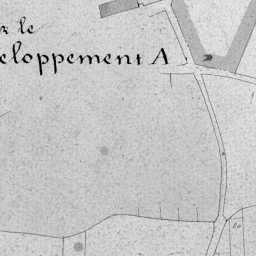 le
eloppement A